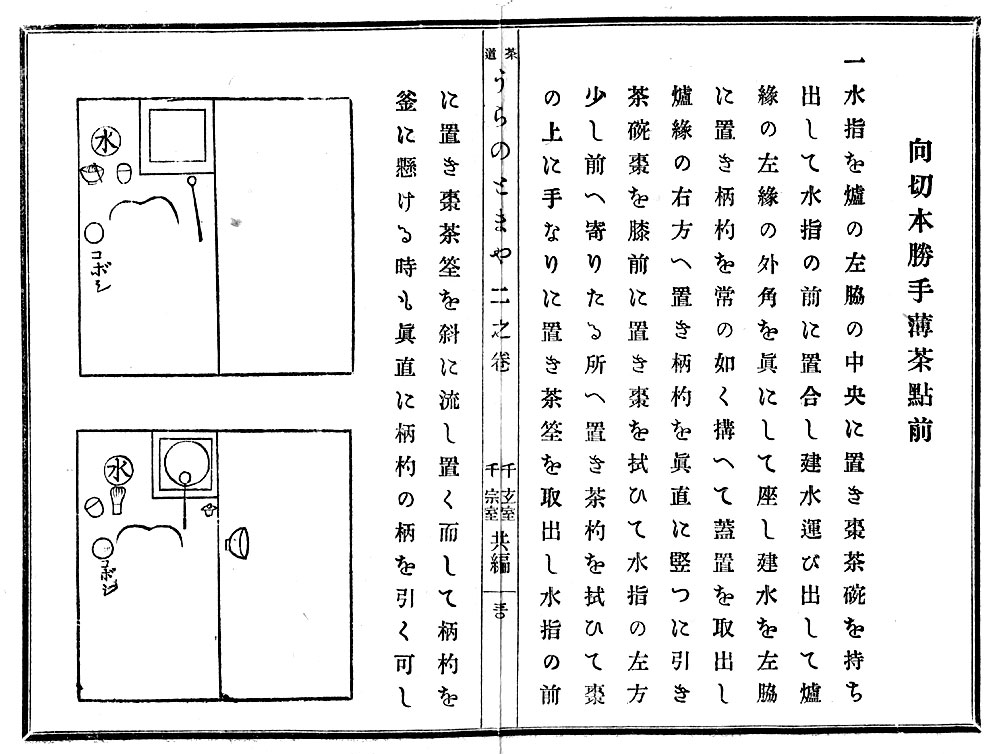 向切本勝手薄茶點前
一水指を爐の左脇の中央に置き棗茶碗を持ち
出して水指の前に置合し建水運び出して爐
緣の左緣の外角を眞にして座し建水を左脇
に置き柄杓を常の如く搆へて蓋置を取出し
爐緣の右方へ置き柄杓を眞直に竪つに引き
茶碗棗を膝前に置き棗を拭ひて水指の左方
少し前へ寄りたる所へ置き茶杓を拭ひて棗
の上に手なりに置き茶筌を取出し水指の前
茶道
うらのとまや 二之卷
千玄室
千宗室
共編
に置き棗茶筌を斜に流し置く而して柄杓を
釜に懸ける時も眞直に柄杓の柄を引く可し
水
コボシ
水
コボシ